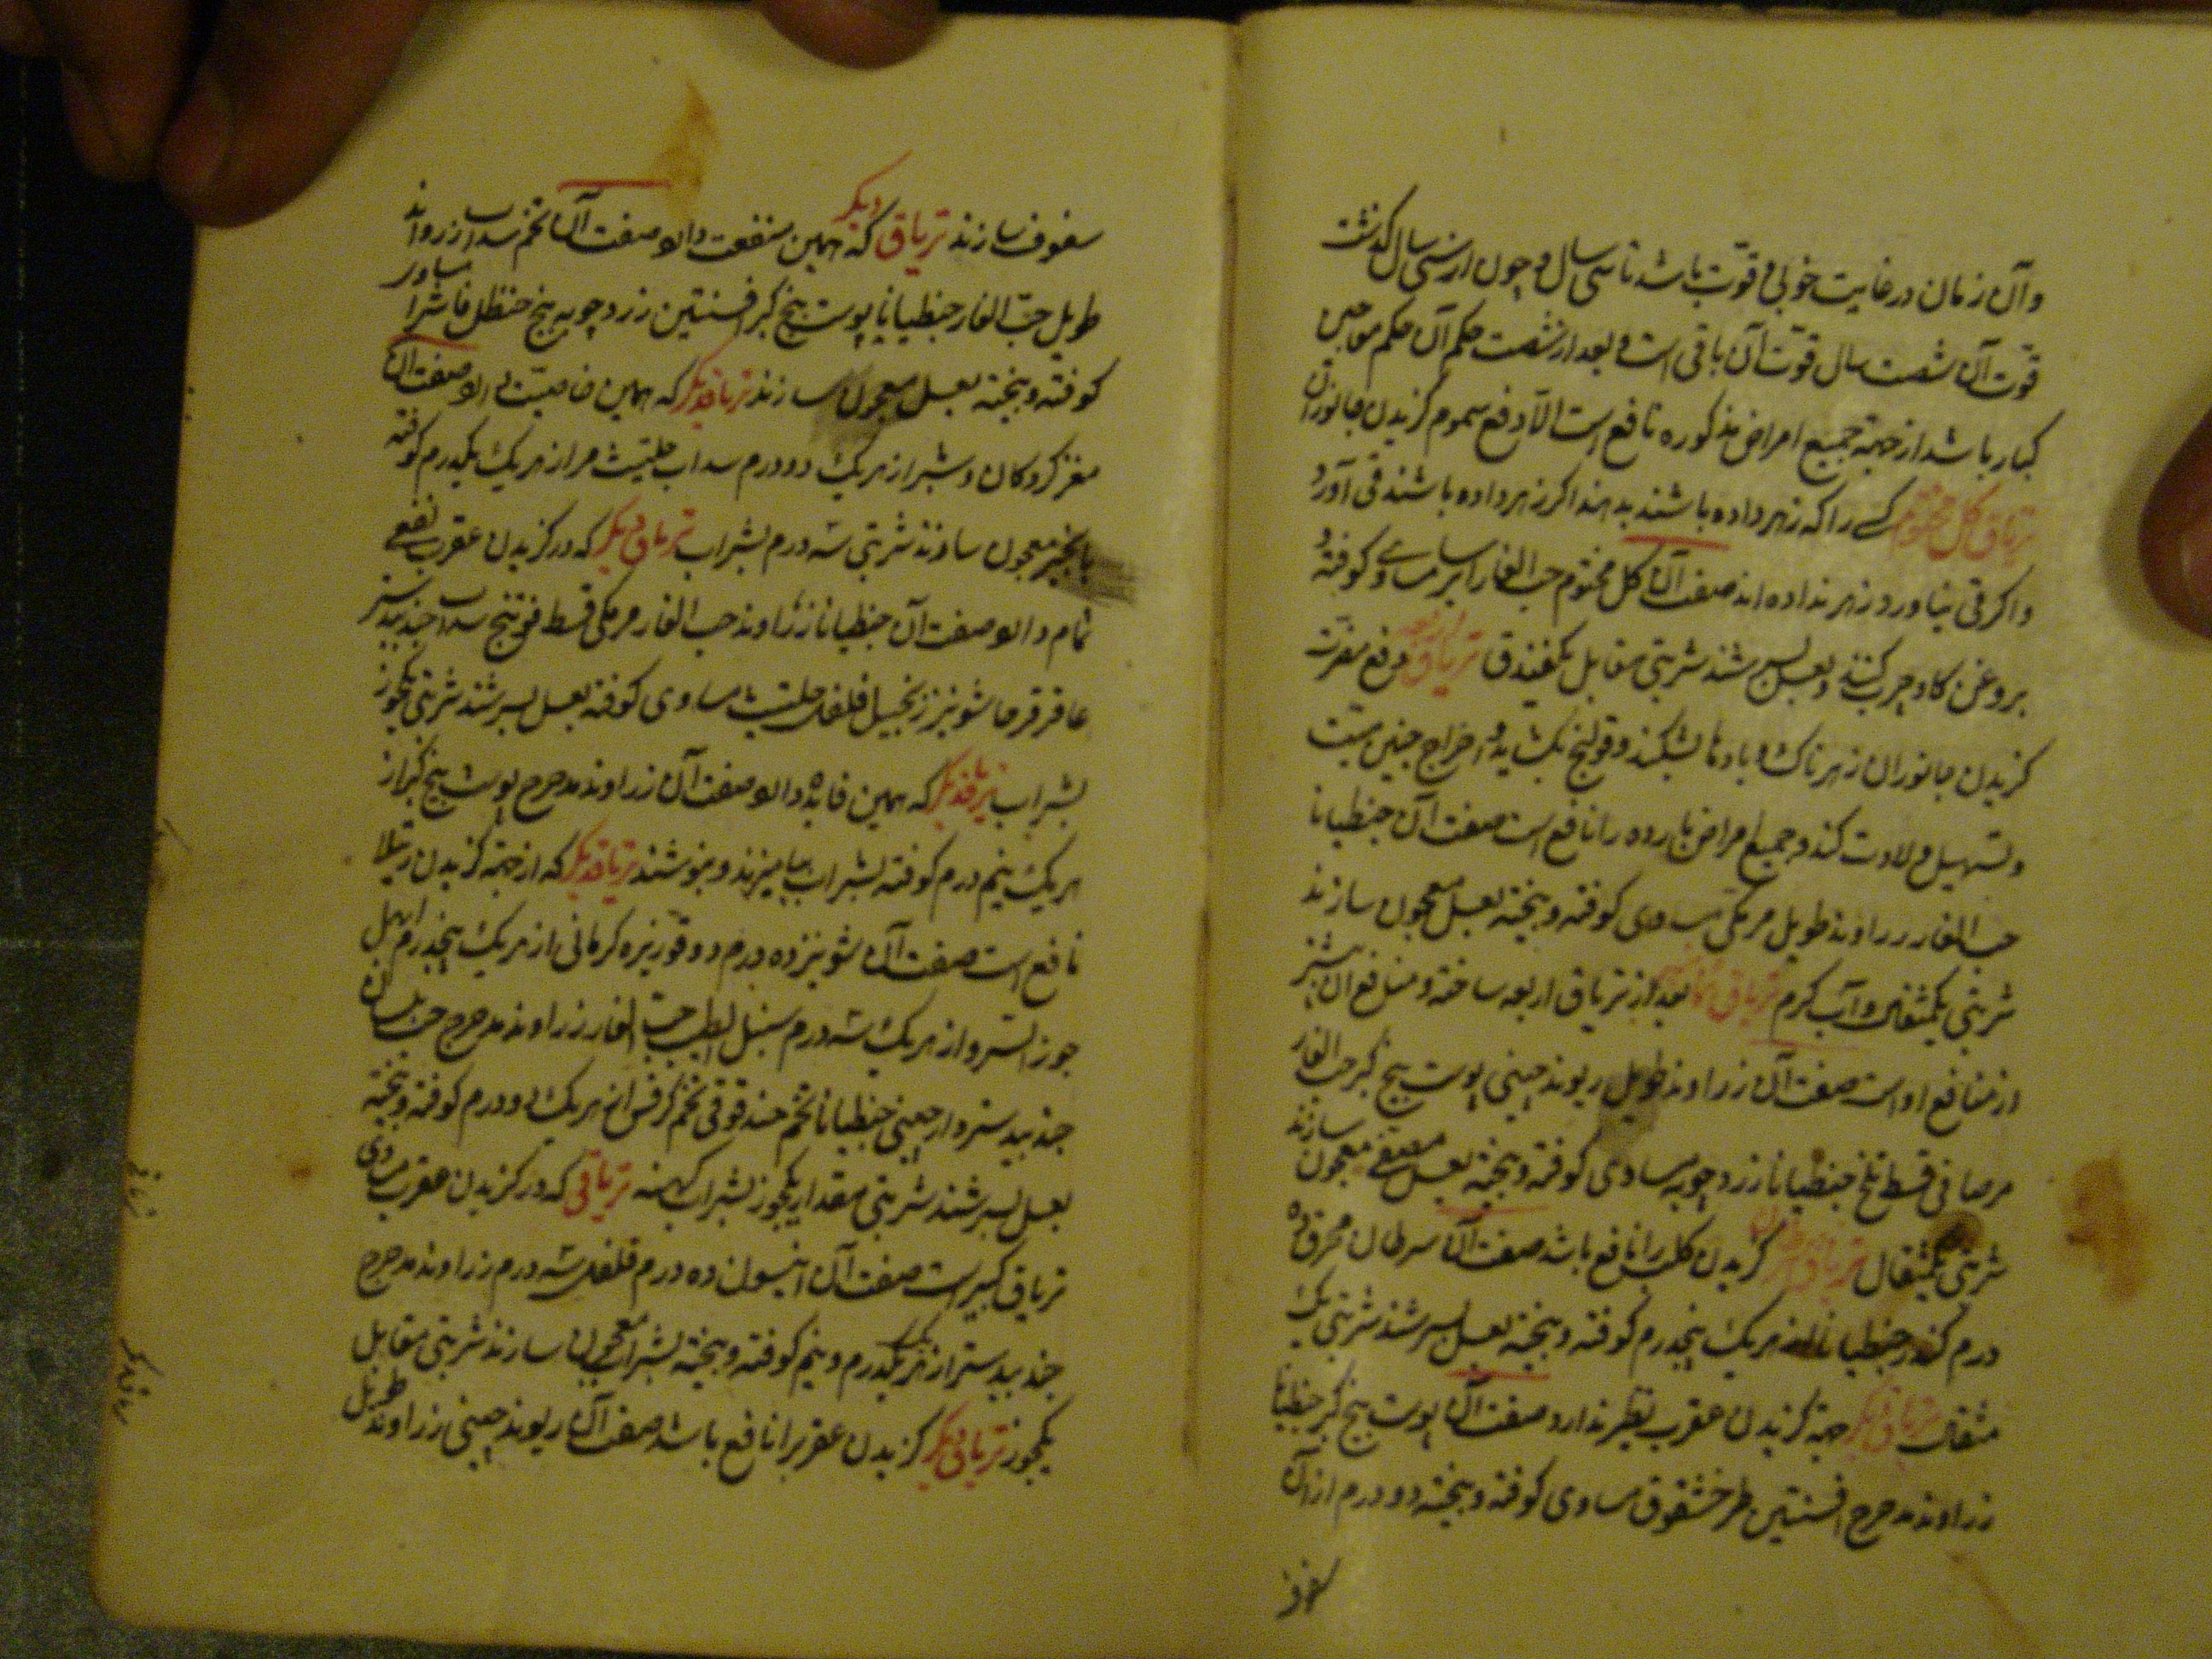 وآن زمان در غایت خوبی و قوّت باشد تا سی سال و چون از سی سال کذشت
قوّت آن شصت سال قوّت آن باقی است و بعد از شصت حکم آن حکم معاجین
کبار باشد از جهة جمیع امراض مذکوره نافع است الّا دفع سموم کزیدن جانوران
تریاق کل مختوم کسے را که زهر داده باشند بدهند اکر زهر داده باشند قی آورد
و اکر قی نیاورد زهر نداده اند صفت آن کل مختوم حب الغار برابر مساوے کوفته
بروغن کاو چرب کنند و بعسل بسرشند شربتی مقابل یکفندق تریاق اربعه دفع مضرّت
کزیدن جانوران زهرناک و بادها بشکند و قولنج بکشاید و اخراج جنین میّت
و تسهیل ولادت کند و جمیع امراض بارده را نافع است صفت آن جنطیانا
حب الغار زراوند طویل مرمکّی مساوی کوفته و بیخته بعسل معجون سازند
شربتی یکمثقال و آب کرم تریاق بعد از تریاق اربعه ساخته و منافع آن بیشتر
از منافع اوست صفت آن زراوند طویل ریوند چینی پوست بیخ کبر حب الغار
مرصافی قسط تلخ جنطیانا زردچوبه مساوی کوفته و بیخته بعسل مصفے معجون سازند
شربتی یکمثقال تریاق کزیدن کلب را نافع باشد صفت آن سرطان محرق ده
درم کندر جنطیانا از هر یک پنجدرم کوفته و بیخته بعسل بسرشند شربتی یک
مثقال تریاق دیکر جهة کزیدن عقرب نظیر ندارد صفت آن پوست بیخ کبر جنطیانا
زراوند مدحرج افسنتین طرخشقوق مساوی کوفته و بیخته دو درم از آن
سفوف
سفوف سازند تریاق دیکر که همین منفعت دارد صفت آن تخم سداب زراوند
طویل حبّ الغار جنطیانا پوست بیخ کبر افسنتین زردچوبه بیخ حنظل فاشرا مساوی
کوفته و بیخته بعسل معجون سازند تریاق دیکر که همین خاصیّت دارد صفت آن
مغز کردکان از هر یک دو درم سداب حلتیت مر از هر یک یکدرم کوفته
بانجیر معجون سازند شربتی سه درم بشراب تریاق دیکر که در کزیدن عقرب نفعے
تمام دارد صفت آن جنطیانا زراوند حب الغار مرمکی قسط فوتنج سداب جندبیدستر
عاقرقرحا شونیز زنجبیل فلفل حلتیت مساوی کوفته بعسل بسرشند شربتی یکجوز
بشراب تریاق دیکر که همین فایده دارد صفت آن زراوند مدحرج پوست بیخ کبر از
هر یک نیم درم کوفته بشراب بیامیزند و بنوشند تریاق دیکر که از جهة کزیدن رتیلا
نافع است صفت آن شونیز ده درم دوقو زیره کرمانی از هر یک پنجدرم ابهل
جوز السرو از هر یک سه درم سنبل الطیب حبّ الغار زراوند مدحرج حب بلسان
جندبیدستر دارچینی جنطیانا تخم حندقوقی تخم کرفس از هر یک دو درم کوفته و بیخته
بعسل بسرشند شربتی مقدار یکجوز بشراب کهنه تریاقی که در کزیدن عقرب مساوی
تریاق کبیر است صفت آن انیسون ده درم فلفل سه درم زراوند مدحرج
جندبیدستر از هر یکدرم و نیم کوفته و بیخته بشراب معجون سازند شربتی مقابل
یکجوز تریاق دیکر کزیدن عقرب را نافع باشد صفت آن ریوند چینی زراوند طویل